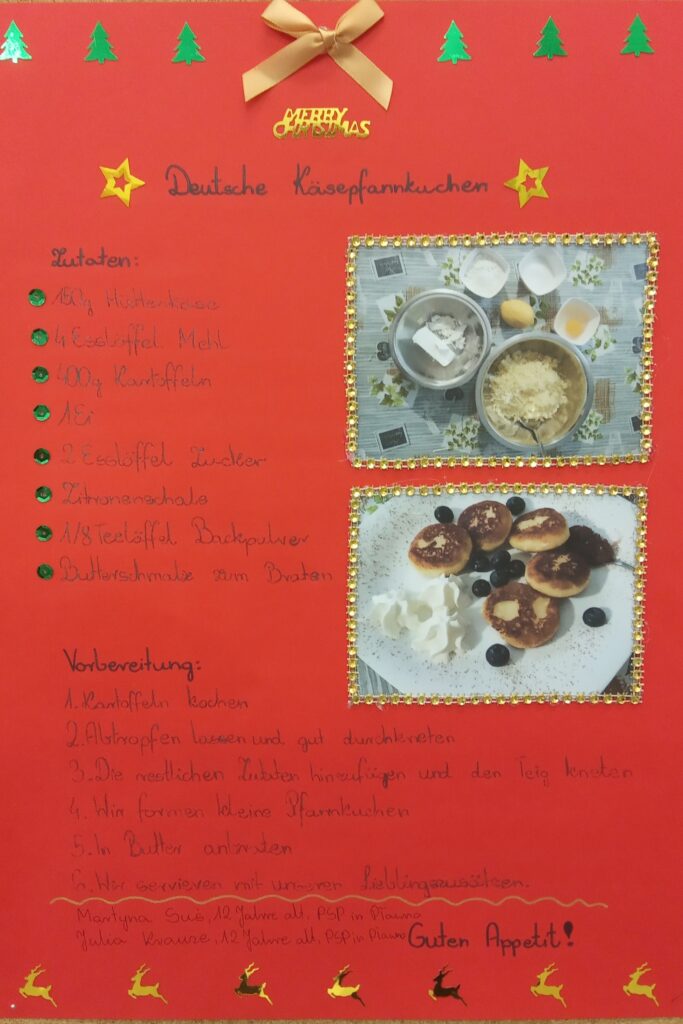 MERRY
CHRISTMAS
Deutsche Käsepfannkuchen
Zutaten:
150g Hüttenkäse
4 Esslöffel Mehl
400g Kartoffeln
1 Ei
2 Esslöffel Zucker
Zitronenschale
1/8 Teelöffel Backpulver
Butterschmalz zum Braten
Vorbereitung:
1. Kartoffeln kochen
2. Abtropfen lassen und gut durchkneten
3. Die restlichen Zutaten hinzufügen und den Teig kneten
4. Wir formen kleine Pfannkuchen
5. In Butter anbraten
6. Wir servieren mit unseren Lieblingszusätzen.
Martyna Suś, 12 Jahre alt, PSP in
Julia Krauze, 12 Jahre alt, PSP in
Guten Appetit!